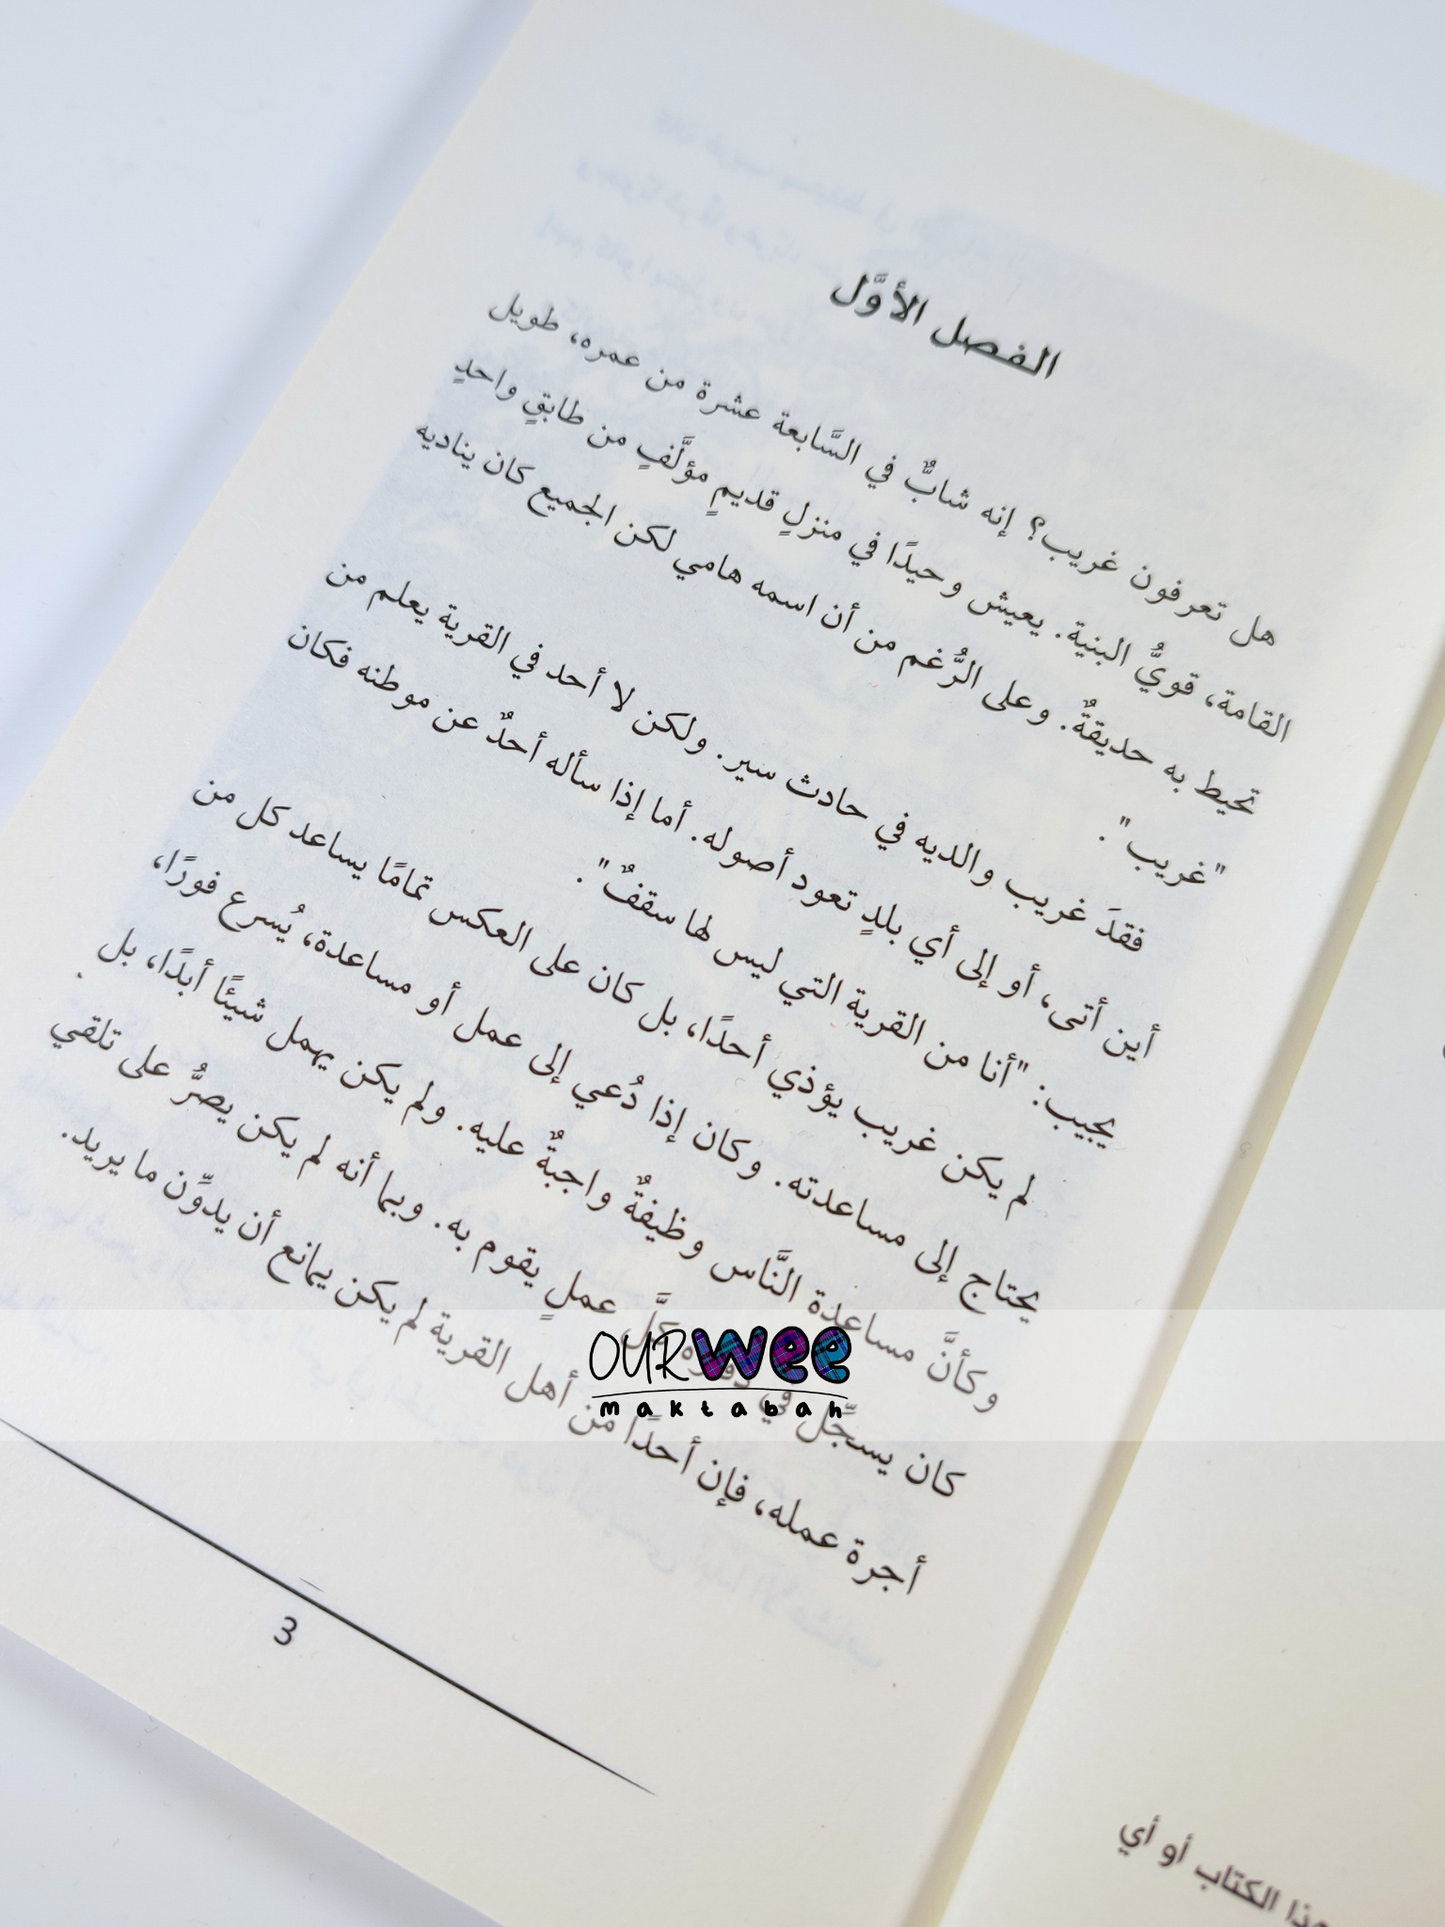 الفصل الأوَّل
هل تعرفون غريب؟ إنه شابٌّ في السَّابعة عشرة من عمره، طويل
القامة، قويُّ البنية. يعيش وحيدًا في منزلٍ قديمٍ مؤلَّفٍ من طابقٍ واحدٍ
تحيط به حديقةٌ. وعلى الرُّغم من أن اسمه هامي لكن الجميع كان يناديه
"غريب".
فقدَ غريب والديه في حادث سير. ولكن لا أحد في القرية يعلم من
أين أتى، أو إلى أي بلدٍ تعود أصوله. أما إذا سأله أحدٌ عن موطنه فكان
يجيب: "أنا من القرية التي ليس لها سقفٌ".
لم يكن غريب يؤذي أحدًا، بل كان على العكس تمامًا يساعد كل من
يحتاج إلى مساعدته. وكان إذا دُعي إلى عمل أو مساعدة، يُسرع فورًا،
وكأنَّ مساعدة النَّاس وظيفةٌ واجبةٌ عليه. ولم يكن يهمل شيئًا أبدًا، بل
كان يسجِّل في كلَّ عملٍ يقوم به. وبما أنه لم يكن يصرُّ على تلقي
أجرة عمله، فإن أحدًا من أهل القرية لم يكن يمانع أن يدوِّن ما يريد.
3
OUR wee
maktabah
هذا الكتاب أو أي